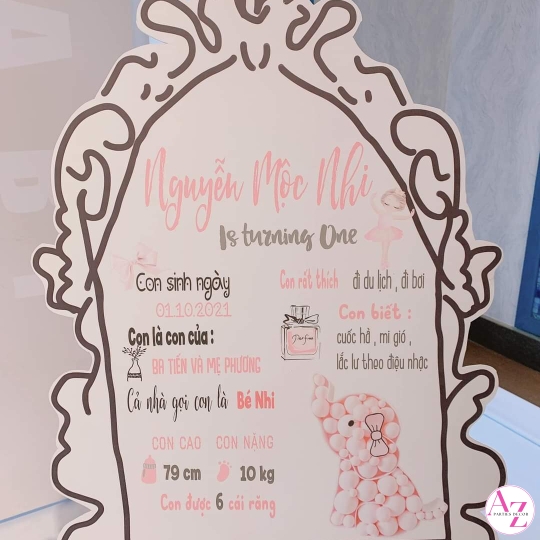 Nguyễn Mộc Nhi
Is turning One
Con sinh ngày
01.10.2021
Con là con của :
BA TIẾN VÀ MẸ PHƯƠNG
Cả nhà gọi con là Bé Nhi
CON CAO CON NẶNG
79 cm 10 kg
Con được 6 cái răng
Con rất thích đi du lịch , đi bơi
Con biết :
cuốc hồ , mi gió ,
lắc lư theo điệu nhạc
Parfum
AZ
PARTIES DECOR